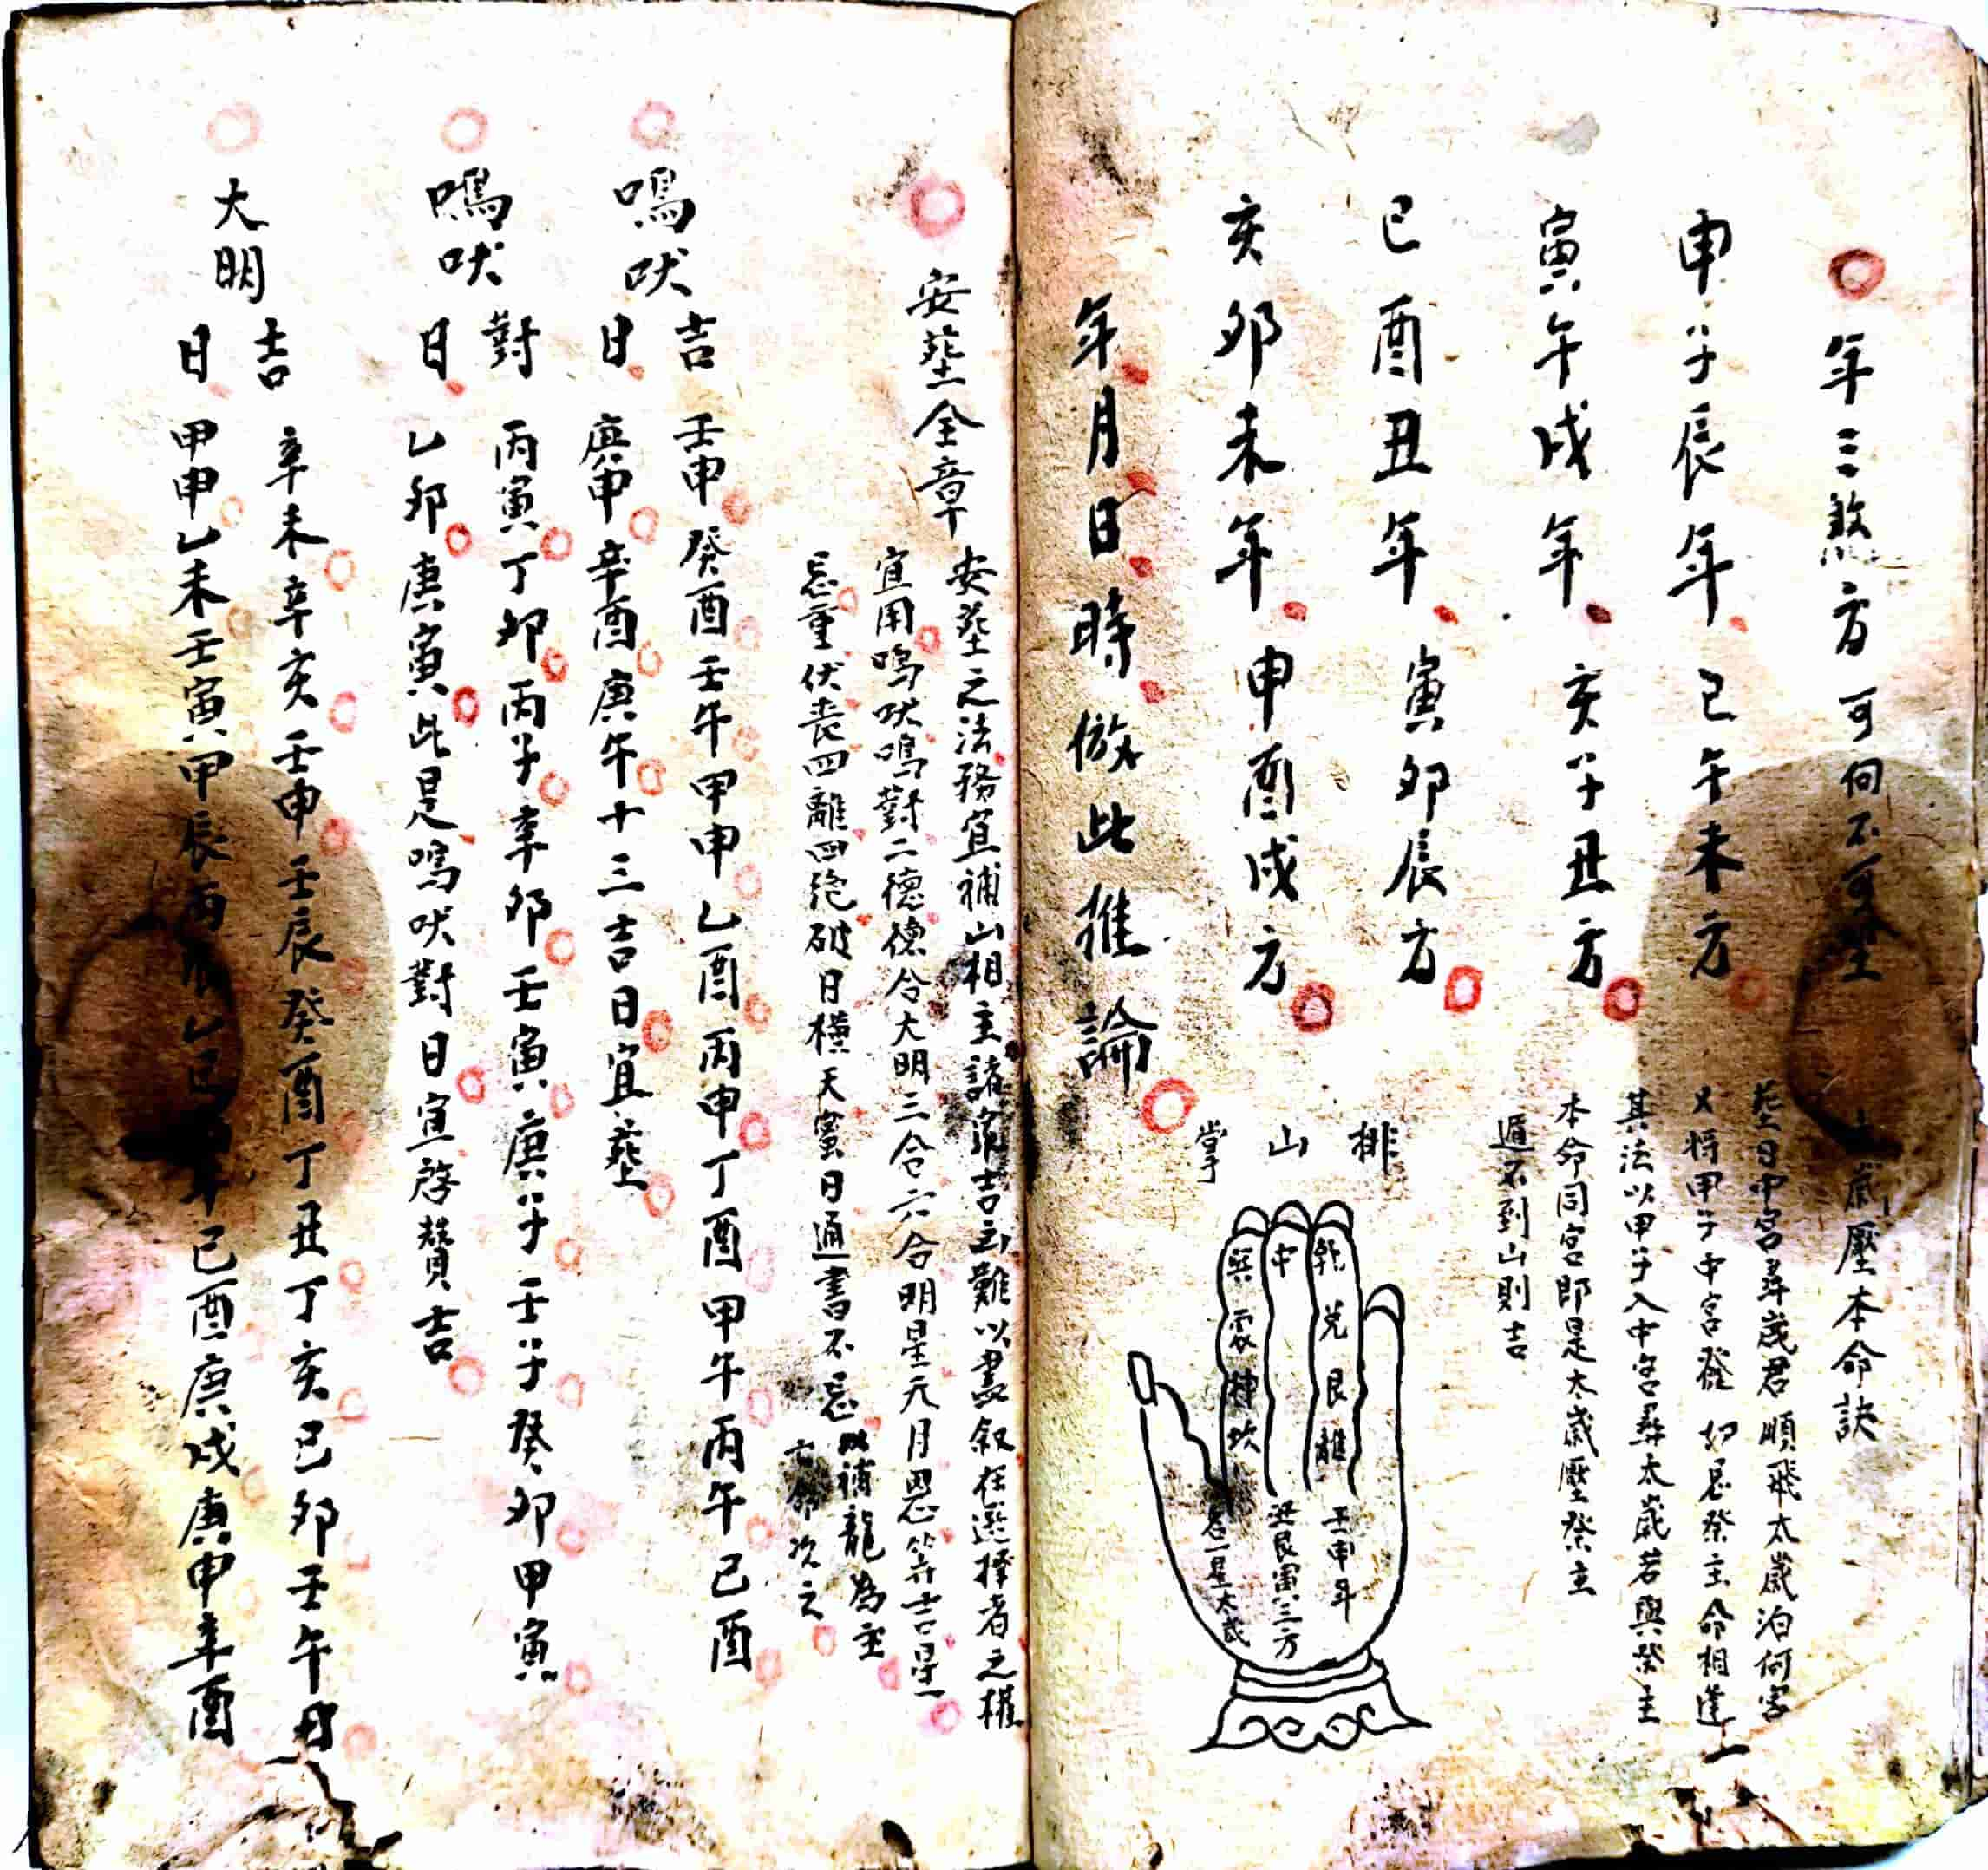 年三煞方可向不可坐
申子辰年巳午未方
寅午戌年亥子丑方
巳酉丑年寅卯辰方
亥卯未年申酉戌方
年月日時倣此推論
歲壓本命訣
葬日中宮尋歲君順飛太歲泊何宮
又將甲子中宮發如忌祭主命相逢
其法以甲子入中宮尋太歲若與祭主
本命同宮即是太歲壓祭主
遁不到山則吉
排山掌
乾兌艮離
中
巽震坤坎
壬申年
艮寅三方
一星太歲
安葬全章
安葬之法務宜補山相主諸家吉凶難以盡叙在選擇者之權
宜用鳴吠鳴對二德德合大明三合六合明星元月恩等吉星
忌重伏喪四離四绝破日橫天蜜日通書不忌
以補龍為主
亡命次之
鳴吠吉日
壬申癸酉壬午甲申乙酉丙申丁酉甲午丙午己酉
庚申辛酉庚午十三吉日宜葬
鳴吠對日
丙寅丁卯丙子辛卯壬寅庚子壬子癸卯甲寅
乙卯庚寅此是鳴吠對日宜啓攢吉
大明吉日
辛未辛亥壬申壬辰癸酉丁丑丁亥己卯壬午丑
甲申乙未壬寅甲辰丙辰乙巳 己酉庚戌庚申辛酉